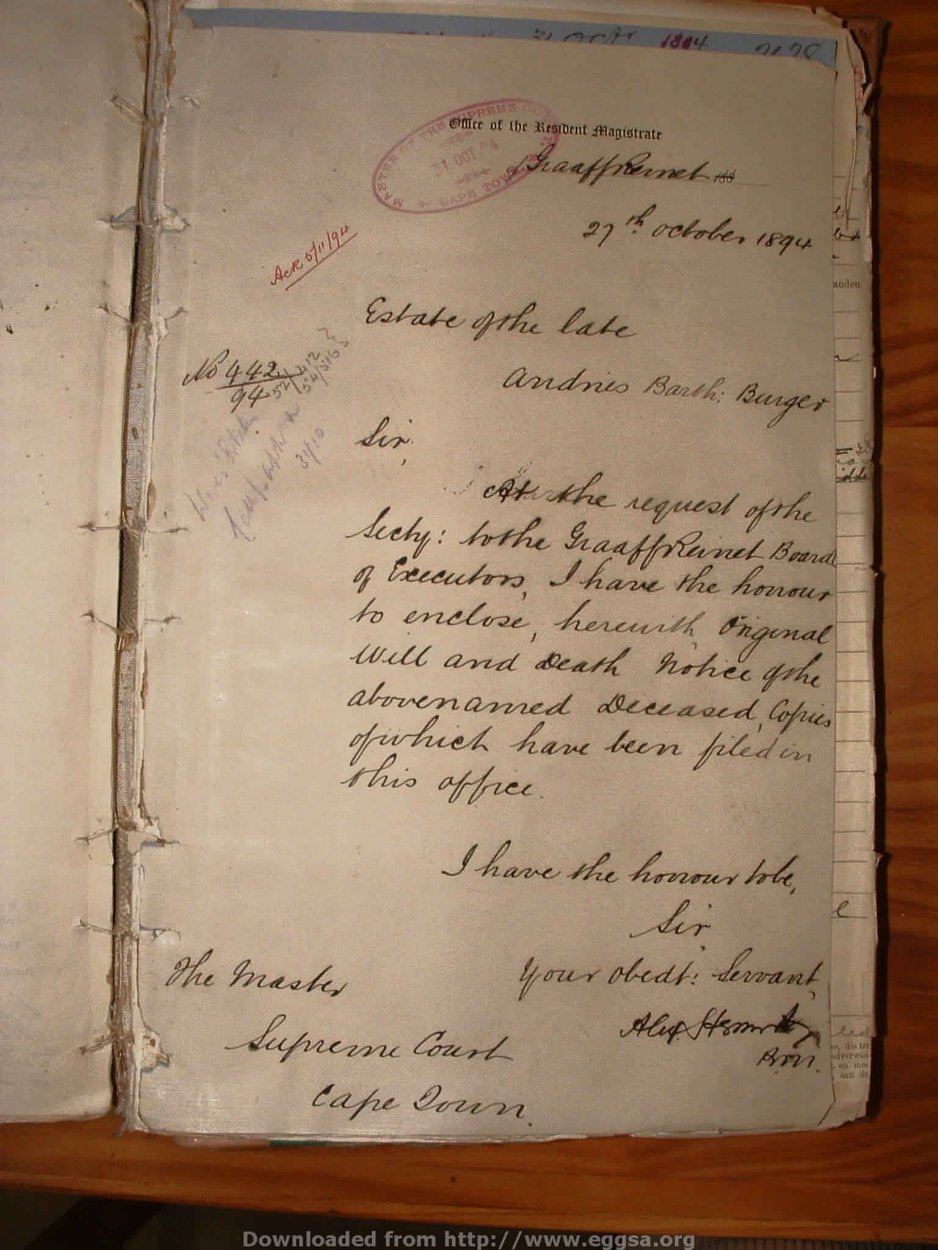 31 Oct 1894
MASTER OF THE SUPREME COURT
31 OCT 94
CAPE TOWN
Office of the Resident Magistrate
Graaff Reinet 188
27th October 1894
Ack 5/11/94
Estate of the late
No 442
94
52/412
54/516
Andries Barth: Burger
Sir,
31/10
At the request of the
Secty: to the Graaff Reinet Board
of Executors, I have the honour
to enclose, herewith Original
Will and Death Notice of the
abovenamed Deceased, Copies
of which have been filed in
this office.
I have the honour to be,
Sir
Your obedt: Servant,
The Master
Supreme Court
Cape Town
R.M.
anden
Downloaded from http://www.eggsa.org